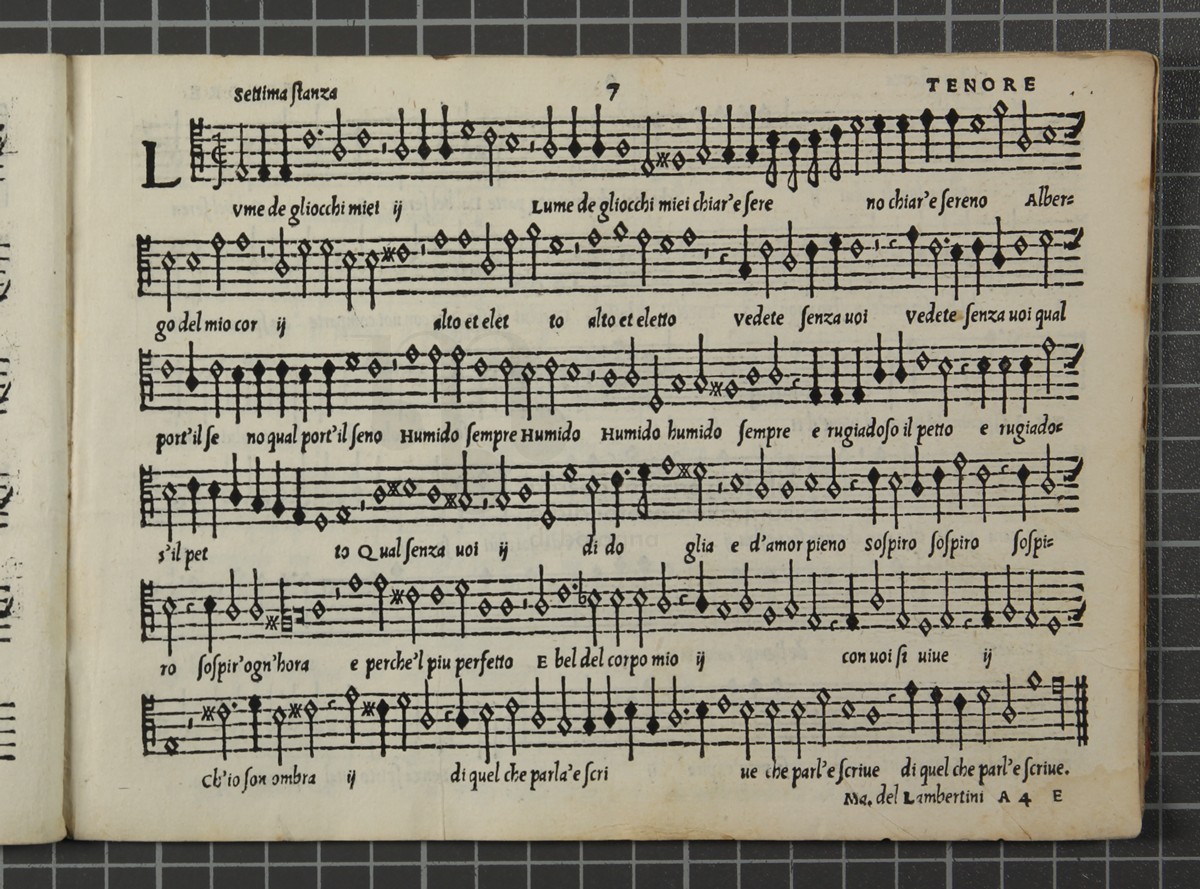 Settima ſtanza 7 TENORE
L
vme de gliocchi miei ij Lume de gliocchi miei chiar'e ſere no chiar'e ſereno Alber=
go del mio cor ij alto et elet to alto et eletto vedete ſenza uoi vedete ſenza uoi qual
port'il ſe no qual port'il ſeno Humido ſempre Humido Humido humido ſempre e rugiadoſo il petto e rugiado=
s'il pet to Qual ſenza uoi ij di do glia e d'amor pieno Soſpiro ſoſpiro ſoſpi=
ro ſoſpir'ogn'hora e perche'l piu perfetto E bel del corpo mio ij con uoi ſi uiue ij
Ch'io ſon ombra ij di quel che parla'e ſcri ue che parl'e ſcriue di quel che parl'e ſcriue.
Ma. del Lambertini A 4 E